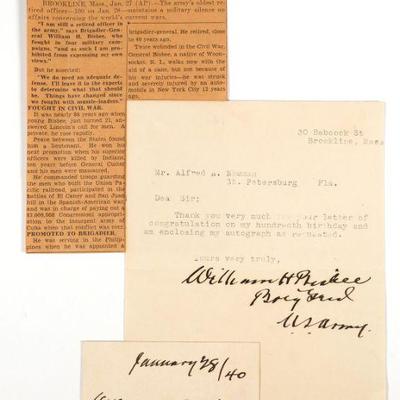 BROOKLINE, Mass., Jan. 27 (AP)—The army's oldest
retired officer—100 on Jan. 28—maintains a military silence on
affairs concerning the world's current wars.
"I am still a retired officer in the
army," says Brigadier-Gen-
eral William H. Bisbee, who
fought in four military cam-
paigns, "and as such I am pro-
hibited from expressing my own
views."
But he asserted:
"We do need an adequate de-
fense. I'll leave it to the experts
to determine what that should
be. Things have changed since
we fought with muzzle-loaders."
FOUGHT IN CIVIL WAR.
It was nearly 80 years ago when
young Bisbee, just turned 21, an-
swered Lincoln's call for men. A
private, he rose rapidly.
Peace between the States found
him a lieutenant. He won his
next promotion when his superior
officers were killed by Indians,
ten years before General Custer
and his men were massacred.
He commanded troops guarding
the men who built the Union Pa-
cific railroad, participated in the
battles of El Caney and San Juan
hill in the Spanish-American war
and was in charge of paying out a
Congressional appropri-
ation to the insurgent army of
Cuba when that conflict was over.
PROMOTED TO BRIGADIER.
He was serving in the Philip-
pines when he was appointed
brigadier-general. He retired, close
to 40 years ago.
Twice wounded in the Civil War,
General Bisbee, a native of Woon-
socket, R. I., walks now with the
aid of a cane, but not because of
his war injuries—he was struck
and severely injured by an auto-
mobile in New York City 12 years
ago.
30 Babcock St
Brookline, Mass
Mr. Alfred A. Newman
St. Petersburg Fla.
Dea Sir:
Thank you very much for your letter of
congratulation on my hundreth birthday and
am enclosing my autograph as requested.
Yours very truly,
William H Bisbee
Brig Genl
U.S. Army.
January 28/40